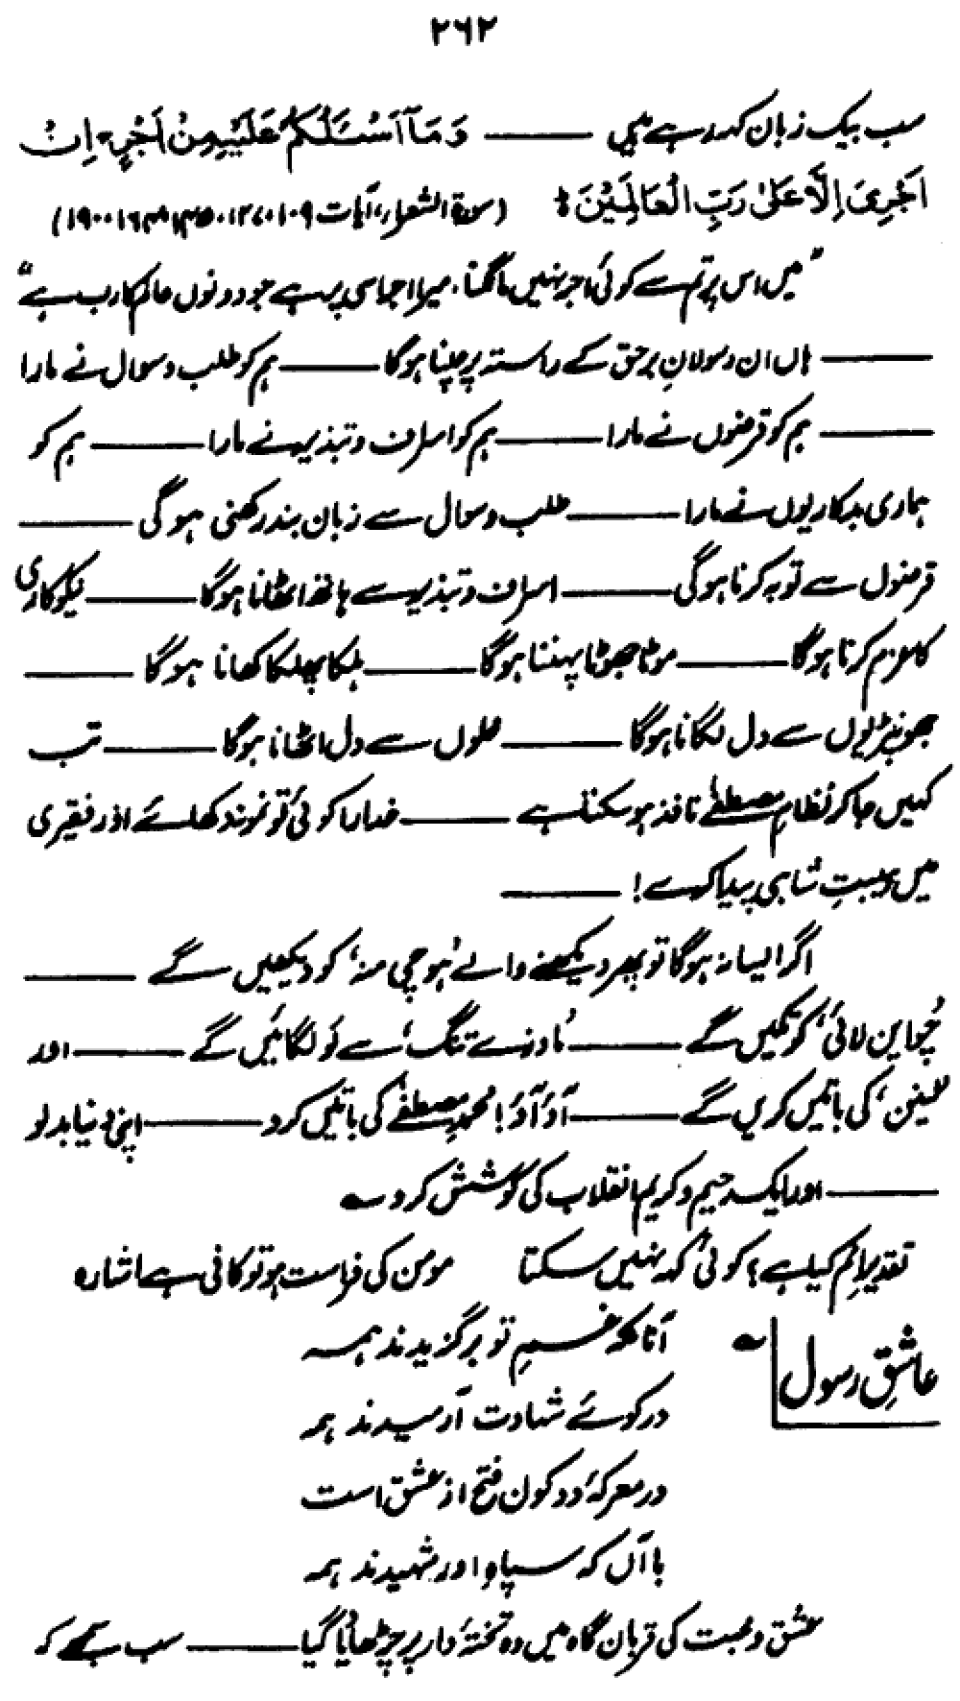 ۲۶۲
سب بیک زبان کہہ رہے ہیں ——— وَمَآ اَسْئَلُکُمْ عَلَیْہِ مِنْ اَجْرٍ، اِنْ
اَجْرِیَ اِلَّا عَلیٰ رَبِّ الْعَالَمِیْنَ ؕ (سورۃ الشعراء، آیات ۱۰۹، ۱۲۷، ۱۴۵، ۱۶۴، ۱۹۰)
”میں اس پر تم سے کوئی اجر نہیں مانگتا، میرا اجر اسی پر ہے جو دونوں عالم کا رب ہے“
——— ہاں ان رسولانِ برحق کے راستہ پر چلنا ہوگا ——— ہم کو طلب و سوال نے مارا
——— ہم کو قرضوں نے مارا ——— ہم کو اسراف و تبذیر نے مارا ——— ہم کو
ہماری بدکاریوں نے مارا ——— طلب و سوال سے زبان بند رکھنی ہوگی ———
قرضوں سے توبہ کرنا ہوگی ——— اسراف و تبذیر سے ہاتھ اٹھانا ہوگا ——— نیکوکاری
کا عزم کرنا ہوگا ——— موٹا جھوٹا پہننا ہوگا ——— ہلکا پھلکا کھانا ہوگا ———
جھونپڑیوں سے دل لگانا ہوگا ——— محلوں سے دل اٹھانا ہوگا ——— تب
کہیں جا کر نظامِ مصطفےٰ نافذ ہو سکتا ہے ——— خدارا کوئی تو نمونہ دکھلائے اور فقیری
میں ہیبتِ شاہی پیدا کرے! ———
اگر ایسا نہ ہوگا تو پھر دیکھنے والے ’ہوچی منہ‘ کو دیکھیں گے ———
’چُو این لائی‘ کو تکیں گے ——— ’ماوزے تنگ‘ سے لَو لگائیں گے ——— اور
’لینن‘ کی باتیں کریں گے ——— آؤ آؤ! محمد مصطفےٰ کی باتیں کرو ——— اپنی دنیا بدلو
——— اور ایک رحیم و کریم انقلاب کی کوشش کرو ؎
تقدیرِ امم کیا ہے؟ کوئی کہہ نہیں سکتا مومن کی فراست ہو تو کافی ہے اشارہ
عاشقِ رسول ؎ آنانکہ غمِ تو برگزیدند ہمہ
در کوئے شہادت آرمیدند ہمہ
در معرکۂ دو کون فتح از عشق است
با آں کہ سپاہِ او شہیدند ہمہ
عشق و محبت کی قربان گاہ میں وہ تختۂ دار پر چڑھایا گیا ——— سب سمجھے کہ